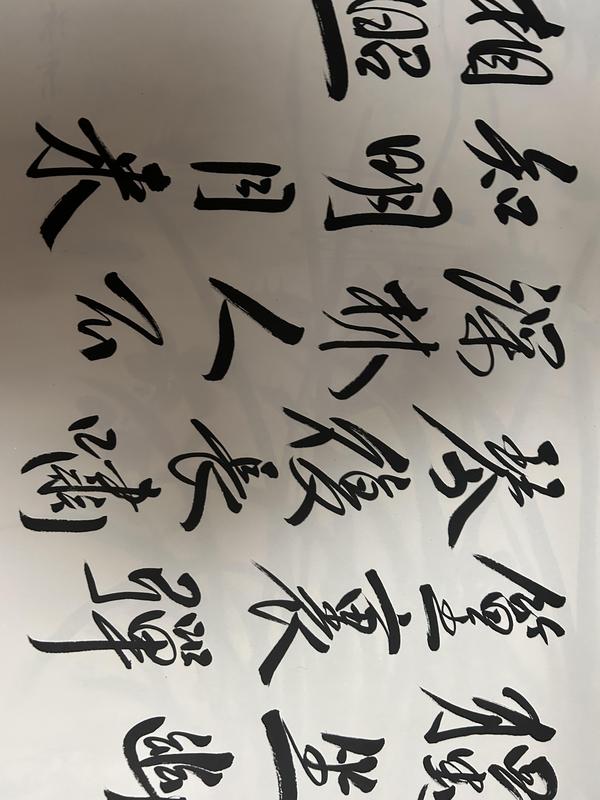 獨坐幽
篁裏彈
琴復長嘯
深林人不
知明月來
相照